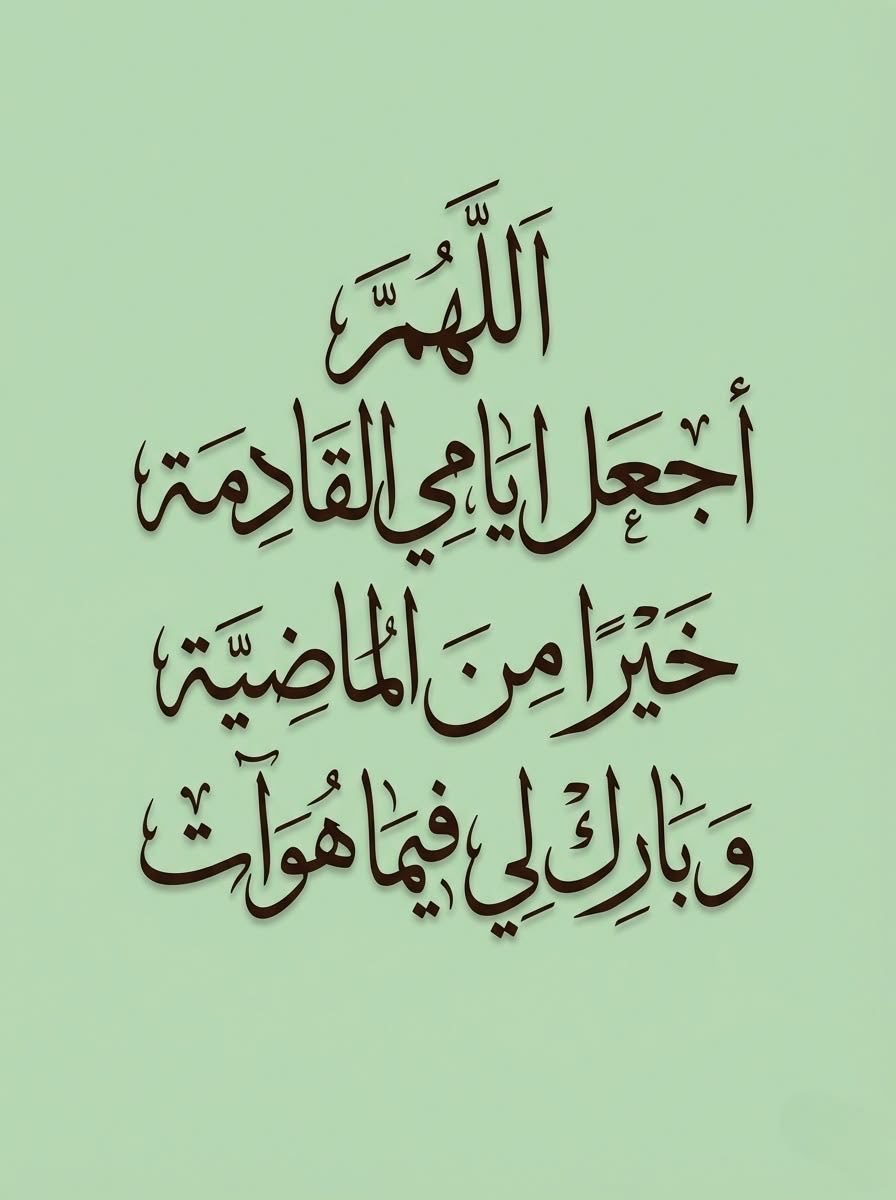 اَللَّهُمَّ
أجْعَل ايَامِي القَادِمَة
خَيْرًا مِنَ المُاضِيَّة
وَبَارِكْ لِي فيِمَا هُوَآتْ